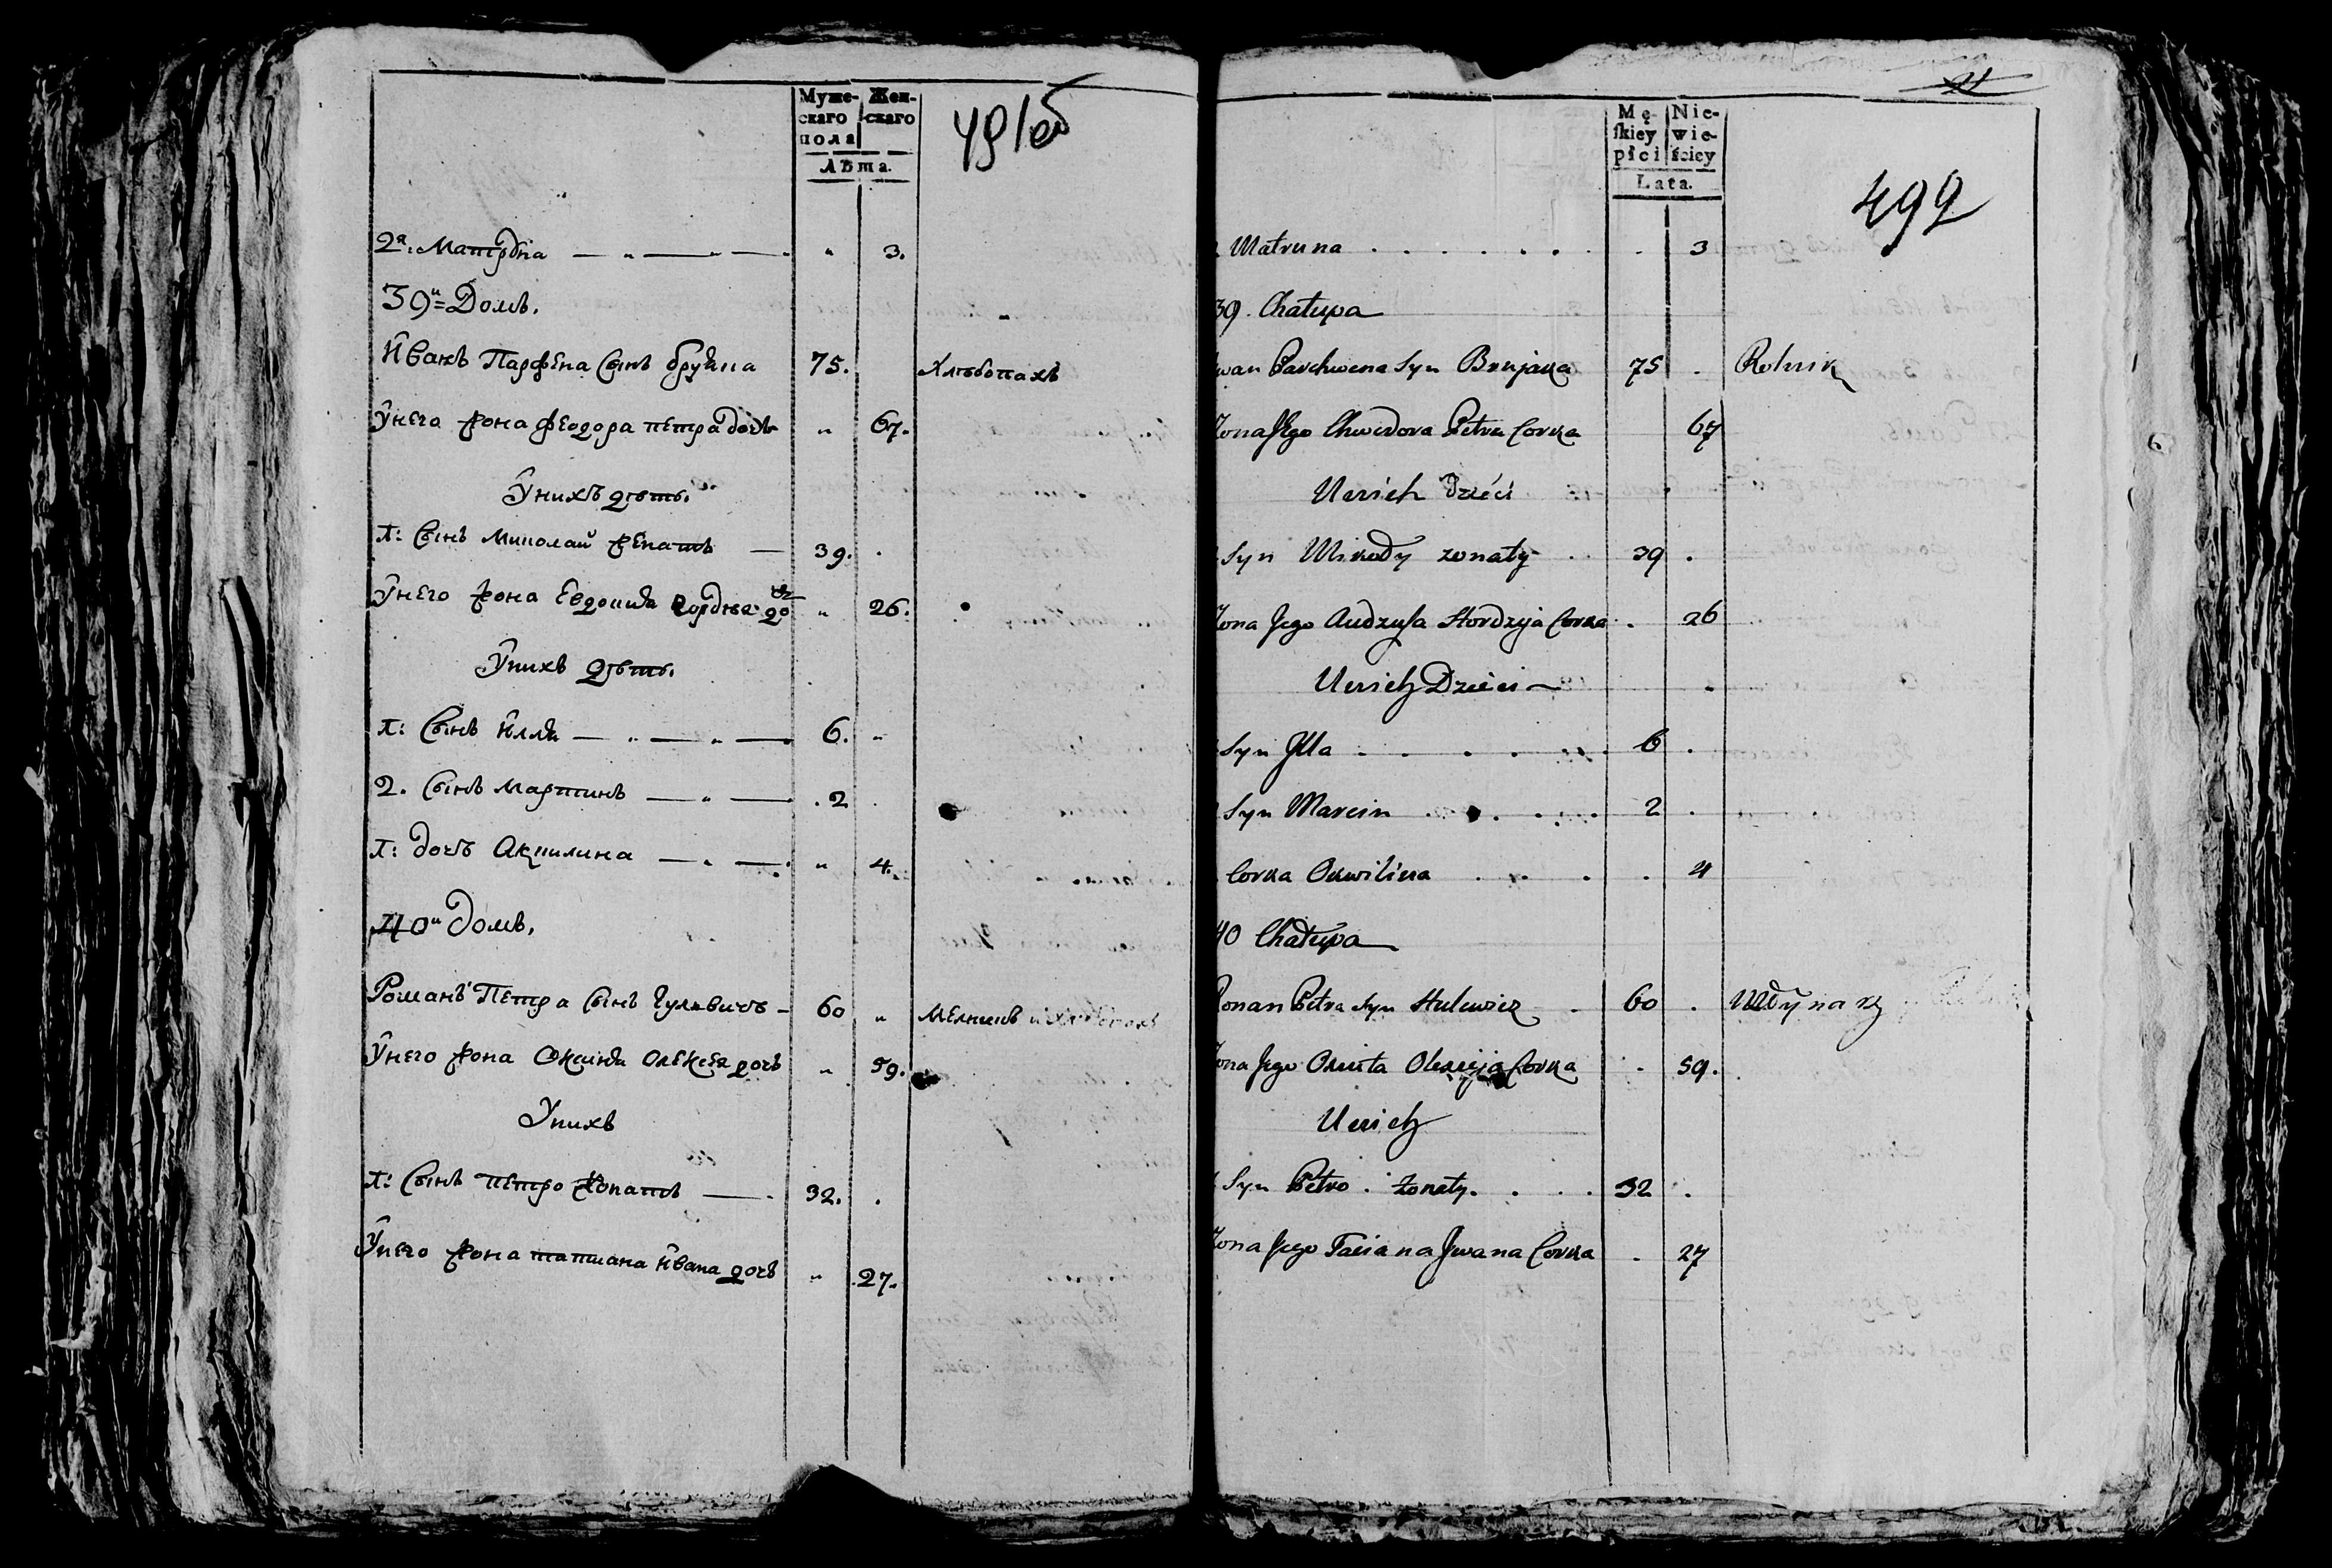 Муже-
скаго
пола
Жен-
скаго
Лѣта.
491об
2я: Матрԏна — „ — „ — „ 3.
39й Домъ.
Иванъ Парфена Сынъ бруяка 75. Хлѣбопахъ
Унего жона феодора петра дочъ „ 67.
Унихъ дѣти.
1: Сынъ Миколай женатъ — 39.
Унего жона Евдокия дочъ „ 26.
Унихъ дѣти.
1: Сынъ Илля — „ — „ — 6. „
2. Сынъ Мартинъ — „ — 2
1: дочъ Акилина — „ — „ 4.
40й домъ.
Романъ Петра Сынъ Гулевичъ – 60 „ Мелникъ
Унего жона Оксиния Олексея дочъ „ 59.
Унихъ
1: Сынъ петро жонатъ — 32.
Унего жона татиана Ивана дочъ „ 27.
Mę-
ſkiey
płci
Nie-
wie-
ściey
Lata.
492
Matruna . . . . . . . 3
39. Chałupa
Iwan Parchwena Syn Brujaka 75 . Rolnik
Zona Jego Chwedora Petra Corka 67
Unich Dzieci
Syn Mikoły zonaty . . 39 .
Zona Jego Audzula Hordzija Corka . 26
Unich Dzieci
Syn Jlla . . . . . 6 .
Syn Marcin . . . . 2 .
Corka Okwilina . . . . 4
40 Chałupa
Roman Petra Syn Hulewicz . 60 . Młynarz
Zona Jego Oxinta Olexieja Corka . 59.
Unich
Syn Petro . Zonaty . . . 32 .
Zona Jego Taciana Jwana Corka . 27